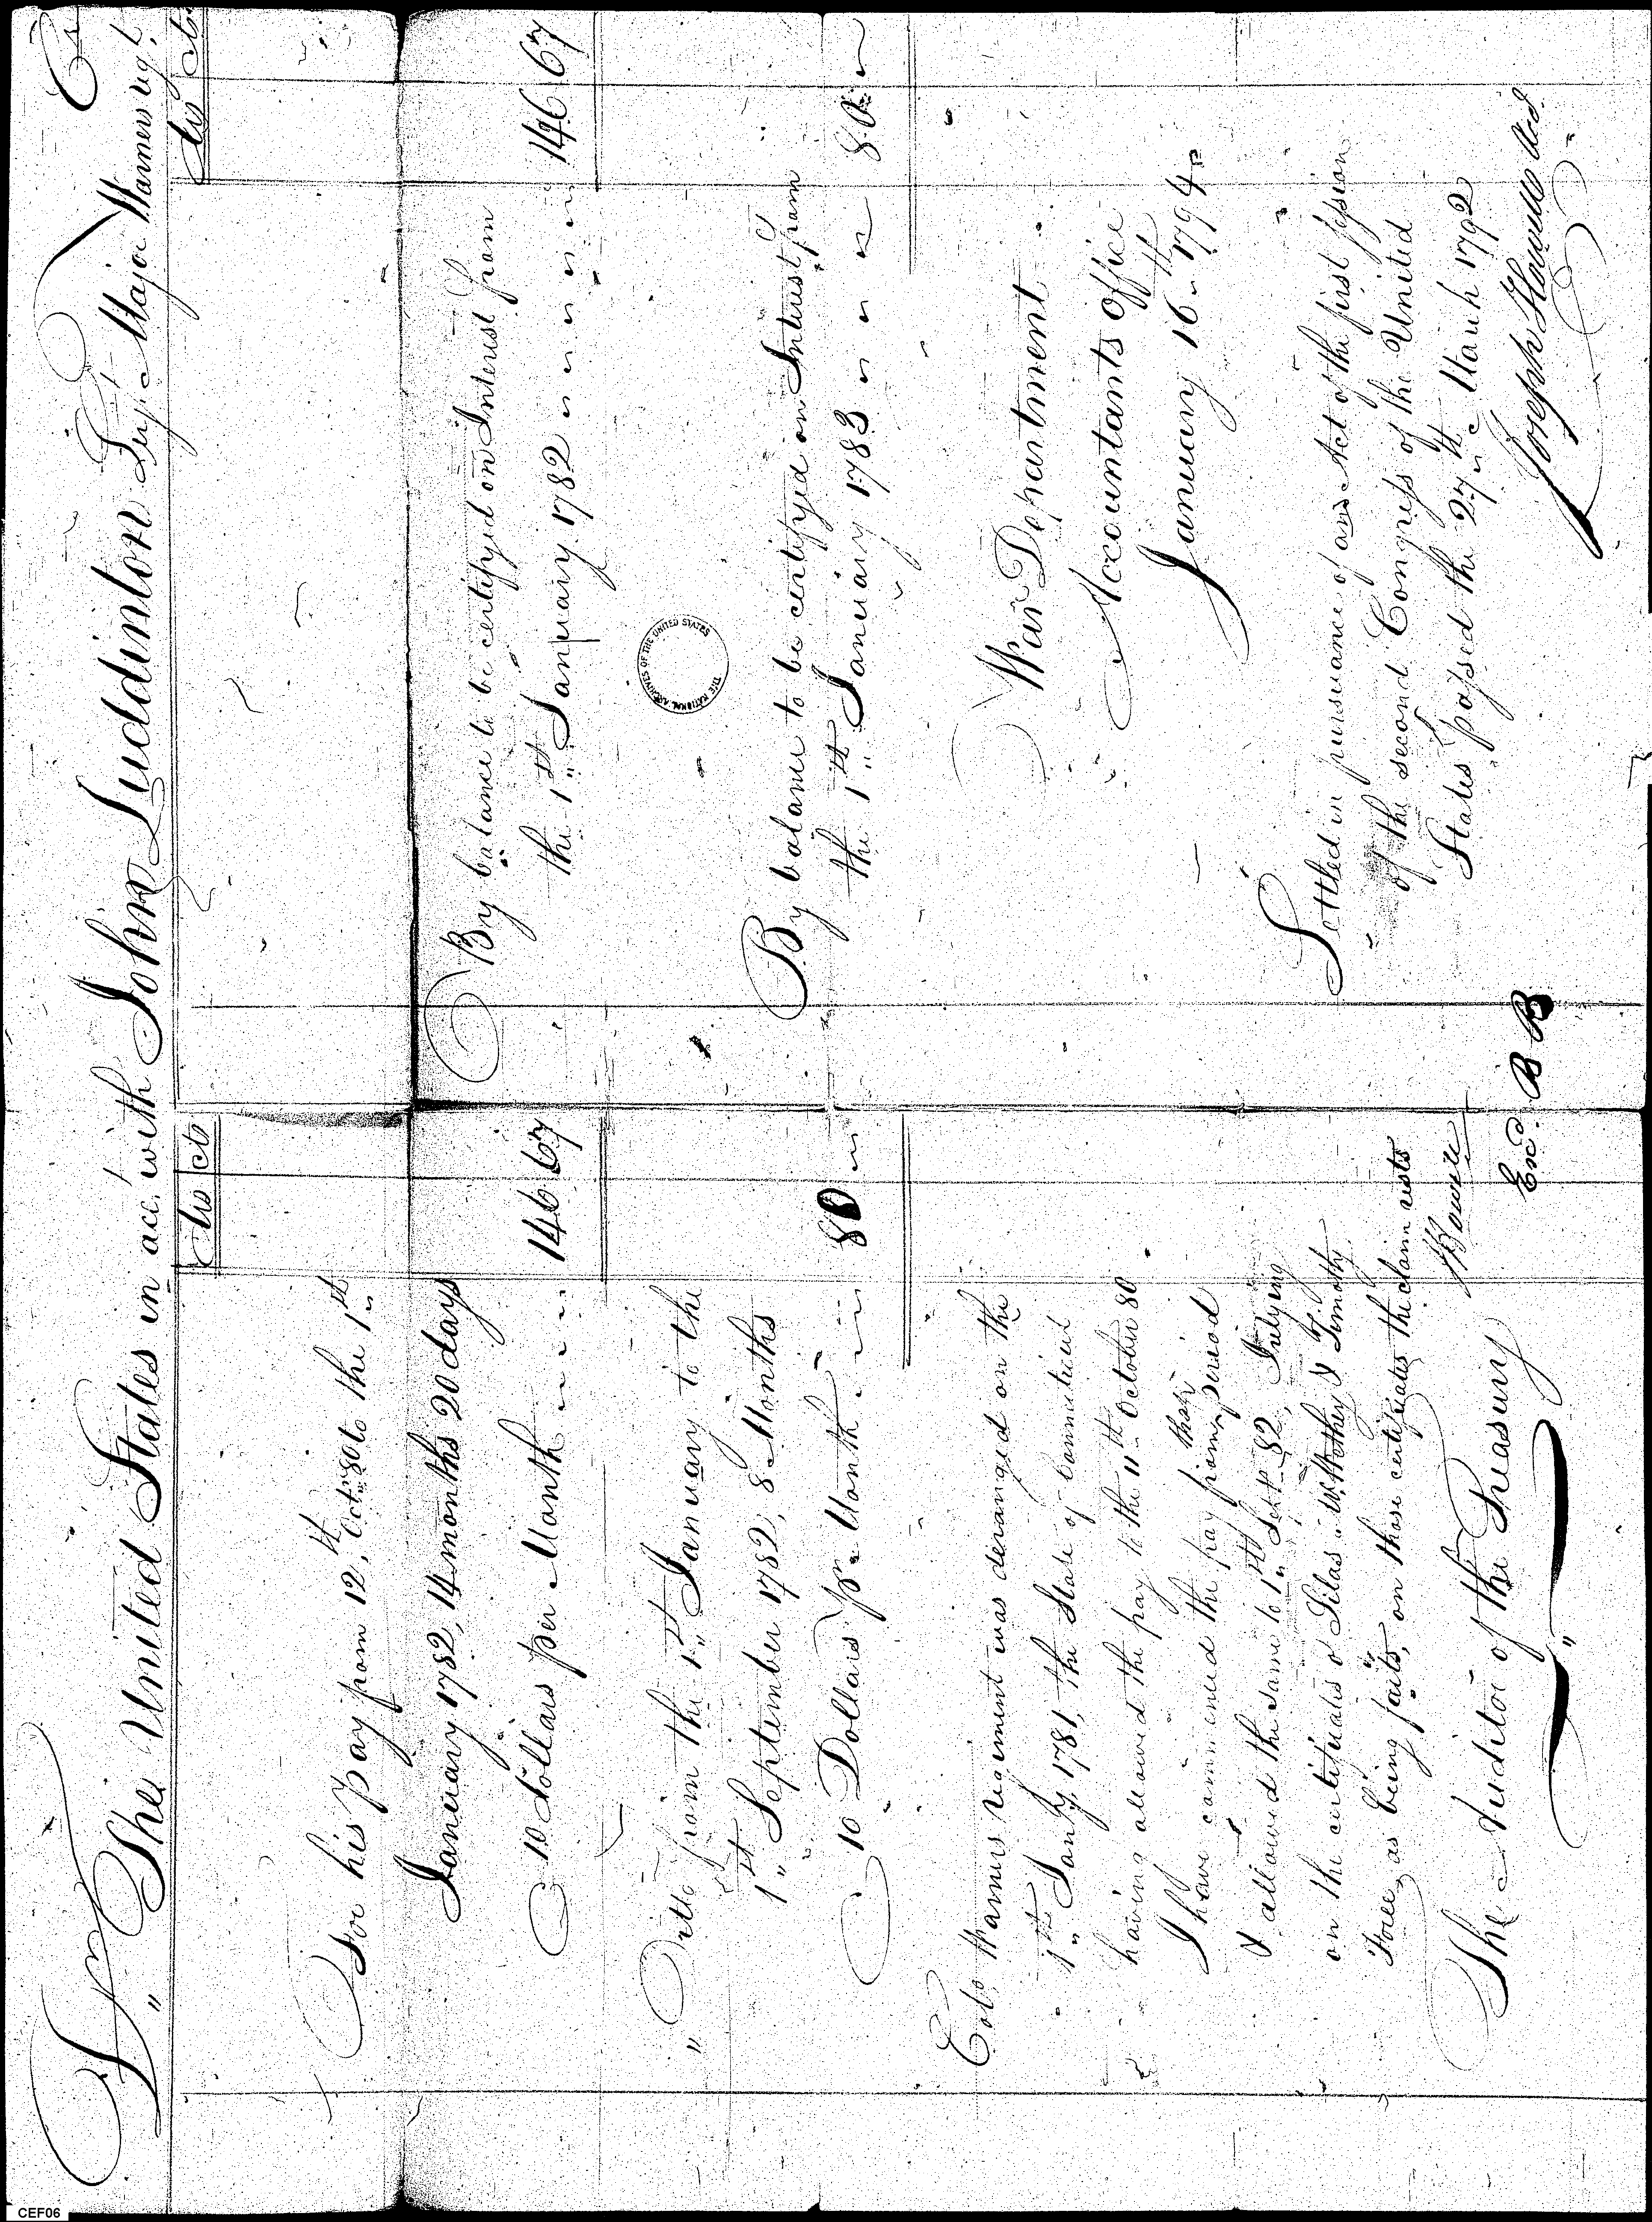 Dr The United States in acct with John Luddinton Serjt Major Warners regt Cr
Dls Cts
Dls Cts
For his pay from 12th Octr 80 to the 1st
January 1782, 14 months 20 days
10 dollars per Month 146 67
" Ditto from the 1st January to the
1st September 1782, 8 Months
10 Dollars pr Month 80
Colo Warners regiment was deranged on the
1st Jany 1781, the State of Connecticut
having allowed the pay to the 11th October 80
I have commenced the pay from that period
& allowed the same to 1st Sept 82, relying
on the certificates of Silas &
as being facts, on those certificates the claim rests
JHowell
The Auditor of the Treasury
Exd. B B
By balance to be certifyed on Interest from
the 1st January 1782 146 67
THE NATIONAL ARCHIVES OF THE UNITED STATES
By balance to be certifyed on Interest from
the 1st January 1783 80
War Department
Accountants Office
January 16th 1794
Settled in pursuance of an Act of the first session
of the second Congress of the United
States passed the 27th March 1792
Joseph Howell Acct
CEF06